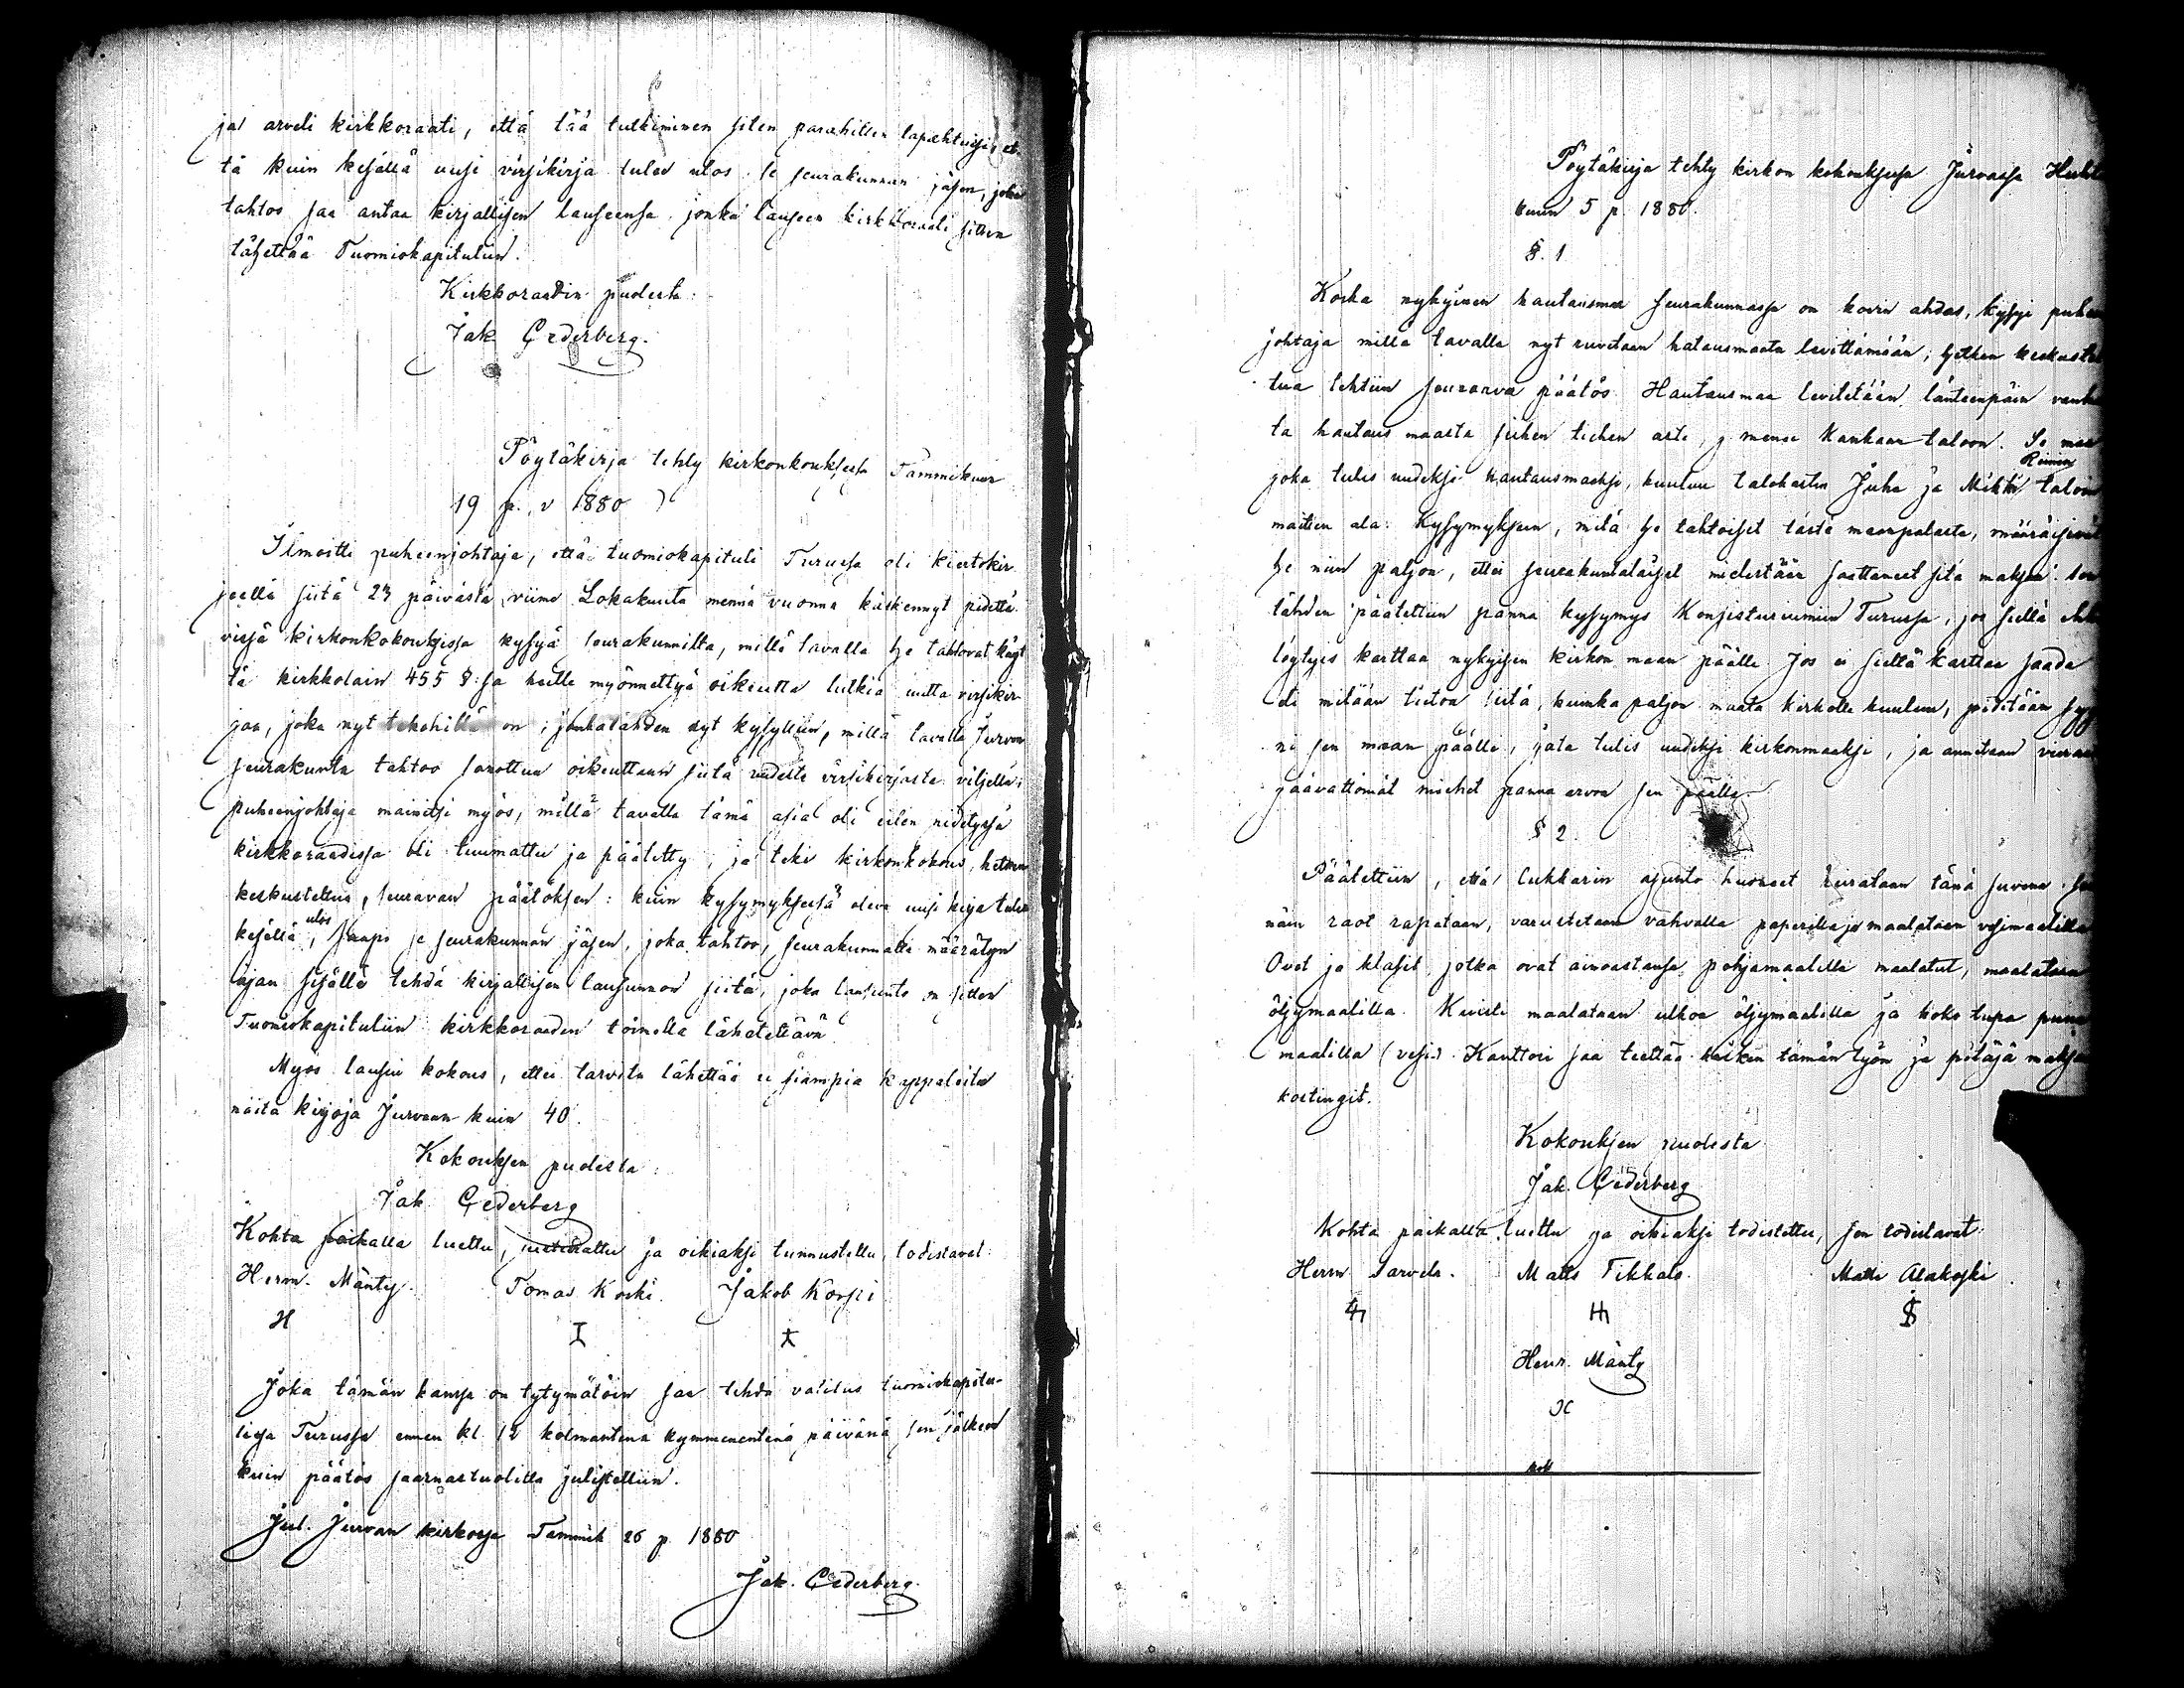 ja arveli kirkkoraati, että tää tutkiminen siten parahitten tapahtuisi, et-
tä kuin kesällä uusi virsikirja tulee ulos se seurakunnan jäsen, joka
tahtoo saa antaa kirjallisen lauseensa, jonka lauseen kirkkoraati sitten
lähettää Tuomiokapituliin.
Kirkkoraadin puolesta:
Jak Cederberg.
Pöytäkirja tehty kirkonkouksessa Tammikuun
19 p., v 1880
Ilmoitti puheenjohtaja, että tuomiokapituli Turussa oli kiertokir-
jeellä siitä 23 päivästä viime Lokakuuta mennä vuonna käskennyt pidettä-
vissä kirkonkokouksissa kysyä seurakunnilta, millä tavalla he tahtovat käyt-
tä kirkkolain 455 §:sa heille myönnettyä oikeutta tutkia uutta virsikir-
jaa, joka nyt tekohilla on; jonkatähden nyt kysyttiin, millä tavalla Jurvan
seurakunta tahtoo sanottua oikeuttansa siitä uudesta virsikirjasta viljellä;
puheenjohtaja mainitsi myös, millä tavalla tämä asia oli eilen pidetyssä
kirkkoraadissa oli tuumattu ja päätetty; ja teki kirkonkokous, hetken
keskusteltua, seuraavan päätöksen: kuin kysymyksessä oleva uusi kirja tulee
ulos
kesällä, saapi se seurakunnan jäsen, joka tahtoo, seurakunnalle määrätyn
ajan sisällä tehdä kirjallisen lausunnon siitä, joka lausunto on sitten
Tuomiokapituliin kirkkoraadin toimella lähetettävä.
Myös lausui kokous, ettei tarvita lähettää useampia kappaleita
näitä kirjoja Jurvaan kuin 40.
Kokouksen puolesta:
Jak Cederberg
Kohta paikalla luettu, ja oikiaksi tunnustettu, todistavat:
Herm. Mänty. Tomas Koski. Jakob Korpi
H I
Joka tämän kanssa on tytymätöin saa tehdä valitus tuomiokapitu-
lissa Turussa ennen kl. 12 kolmantena kymmenentenä päivänä sen jälkeen
kuin päätös saarnastuolilla julistettiin.
Jul. Jurvan kirkossa Tammik 26 p 1880
Jak. Cederberg.
Pöytäkirja tehty kirkon kokouksessa Jurvassa Huhti
kuun 5 p. 1880.
§. 1
Koska nykyinen hautausmaa seurakunnassa on kovin ahdas, kysyi puheen
johtaja millä tavalla nyt ruvetaan hatausmaata levittämään; hetken keskustel
tua tehtiin seuraava päätös. Hautausmaa levitetään länteenpäin vanhas
ta hautausmaasta siihen tiehen asti, j. menee Kankaan taloon. Se maa
Reinin
joka tulis uudeksi hautausmaaksi, kuuluu talokasten Juha ja Mikki talon
maitten ala. Kysymyksen, mitä he tahtoiset tästä maapalasta, määräisivät
he niin paljon, ettei seurakuntalaiset mielestään saattaneet sitä maksaa. sen
tähden päätettiin panna kysymys Konsistoriumiin Turussa, jos siellä ehkä
löytyis karttaa nykyisen kirkon maan päälle. Jos ei sieltä karttaa saada
eli mitään tietoa siitä, kuinka paljon maata kirkolle kuuluu, pidetään syy
ni sen maan päälle, jota tulis uudeksi kirkonmaaksi, ja annetaan vieraan
päävattömät miehet panna arvon sen päälle.
§ 2.
Päätettiin, että lukkarin asunto huoneet kuirataan tänä suvena. Sei
näin raot rapataan, varustetaan vahvalla paperilla ja maalataan vesimaalilla
Ovet ja klasit, jotka ovat ainoastansa pohjamaalilla maalatut, maalataan
öljymaalilla. Kuisti maalataan ulkoa öljymaalilla ja koko tupa puna
maalilla (vesi-). Kanttori saa teettää kaiken tämän työn ja pitäjä maksaa
kostingit.
Kokouksen puolesta
Jak. Cederberg
Kohta paikalla luettu ja oikiaksi todistettu, sen todistavat:
Herm Sarvela. Matts Tikkala. Matti Alakoski.
Herr. Mänty